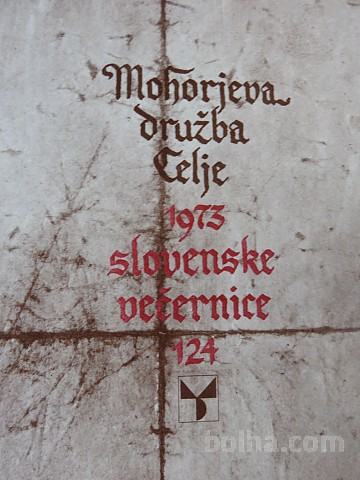 Mohorjeva
družba
Celje
1973
slovenske
večernice
124
bolha.com